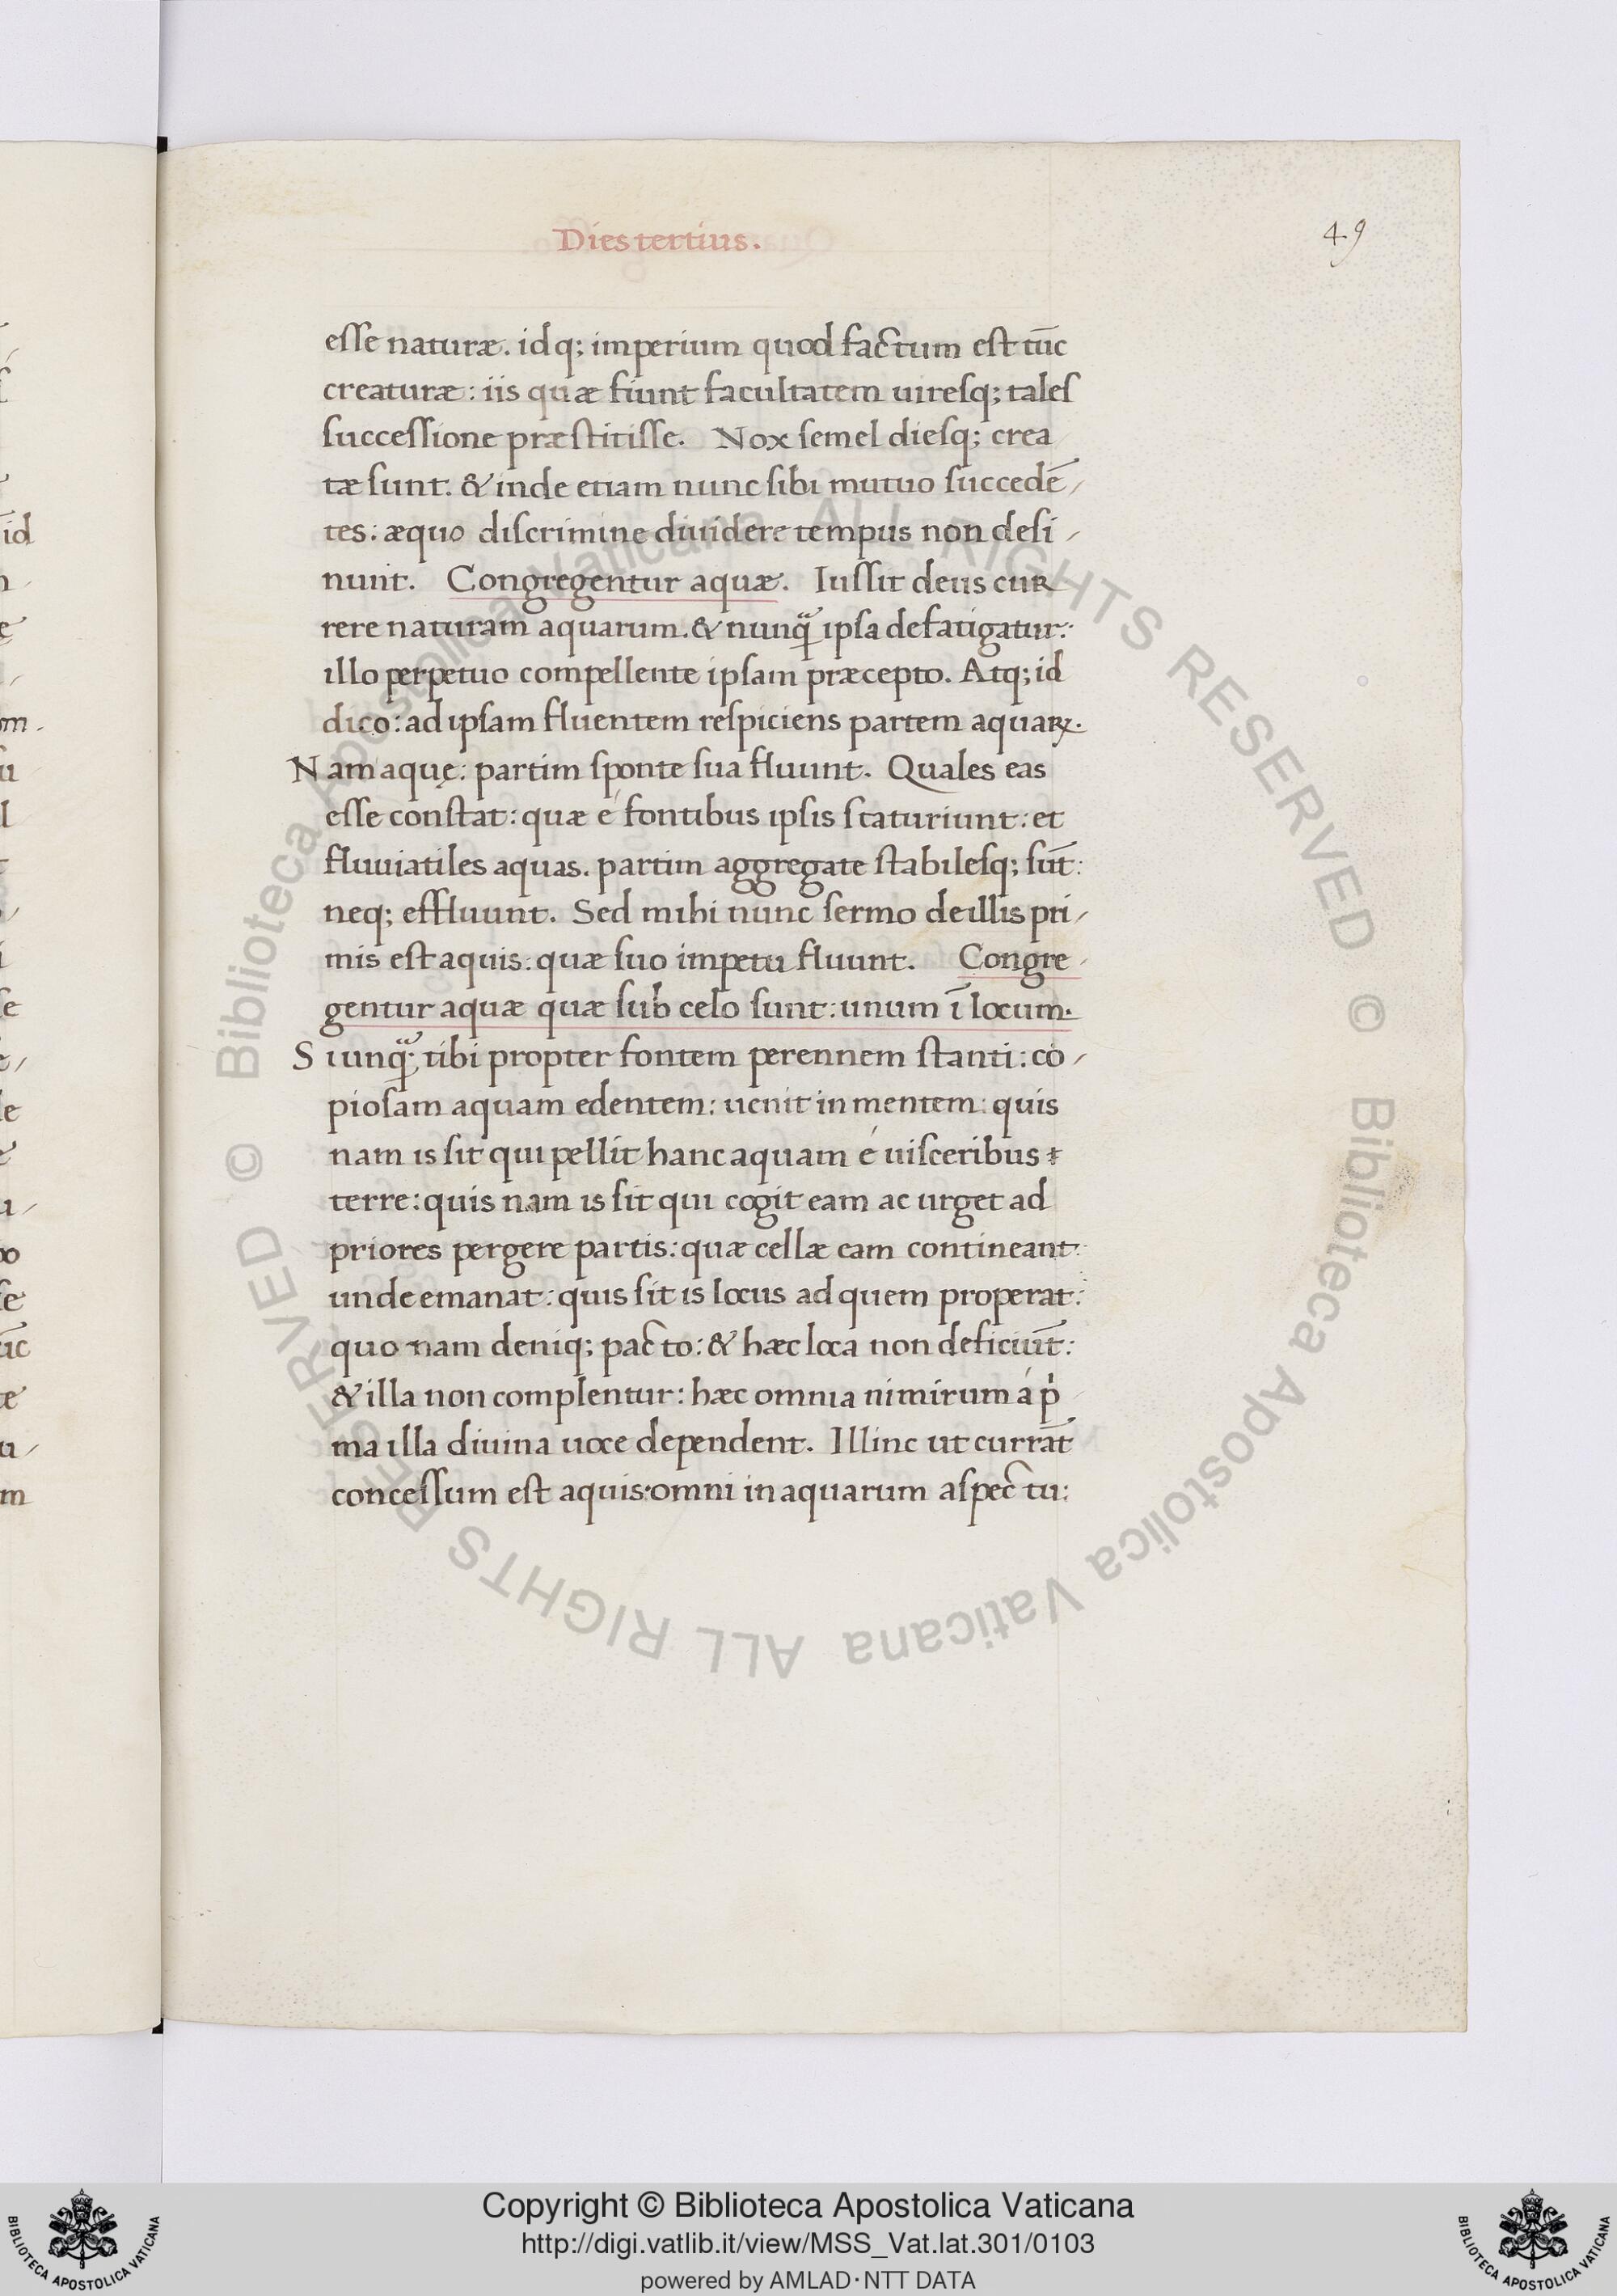 Dies tertius.
49
esse naturæ. idq; imperium quod factum est tūc
creaturæ: iis quæ fiunt facultatem uiresq; tales
successione præstitisse. Nox semel diesq; crea
tæ sunt. & inde etiam nunc sibi mutuo succedē/
tes: æquo discrimine diuidere tempus non desi/
nunt. Congregentur aquæ. Iussit deus cur
rere naturam aquarum. & nunq̃ ipsa defatigatur:
illo perpetuo compellente ipsam præcepto. Atq; id
dico: ad ipsam fluentem respiciens partem aquaꝝ.
Nam aquę: partim sponte sua fluunt. Quales eas
esse constat: quæ é fontibus ipsis scaturiunt: et
fluuiatiles aquas. partim aggregate stabilesq; sūt:
neq; effluunt. Sed mihi nunc sermo de illis pri/
mis est aquis: quæ suo impetu fluunt. Congre/
gentur aquæ quæ sub celo sunt: unum ī locum.
Siunq̃: tibi propter fontem perennem stanti: co/
piosam aquam edentem: uenit in mentem: quis
nam is sit qui pellit hanc aquam é uisceribus
terre: quis nam is sit qui cogit eam ac urget ad
priores pergere partis: quæ cellæ eam contineant:
unde emanat: quis sit is locus ad quem properat:
quo nam deniq; pacto: & hæc loca non deficiūt:
& illa non complentur: hæc omnia nimirum á p̍
ma illa diuina uoce dependent. Illinc ut currāt
concessum est aquis: omni in aquarum aspectu:
© Biblioteca Apostolica Vaticana ALL RIGHTS RESERVED
© Biblioteca Apostolica Vaticana ALL RIGHTS RESERVED
Copyright © Biblioteca Apostolica Vaticana
http://digi.vatlib.it/view/MSS_Vat.lat.301/0103
powered by AMLAD·NTT DATA
BIBLIOTECA APOSTOLICA VATICANA
BIBLIOTECA APOSTOLICA VATICANA